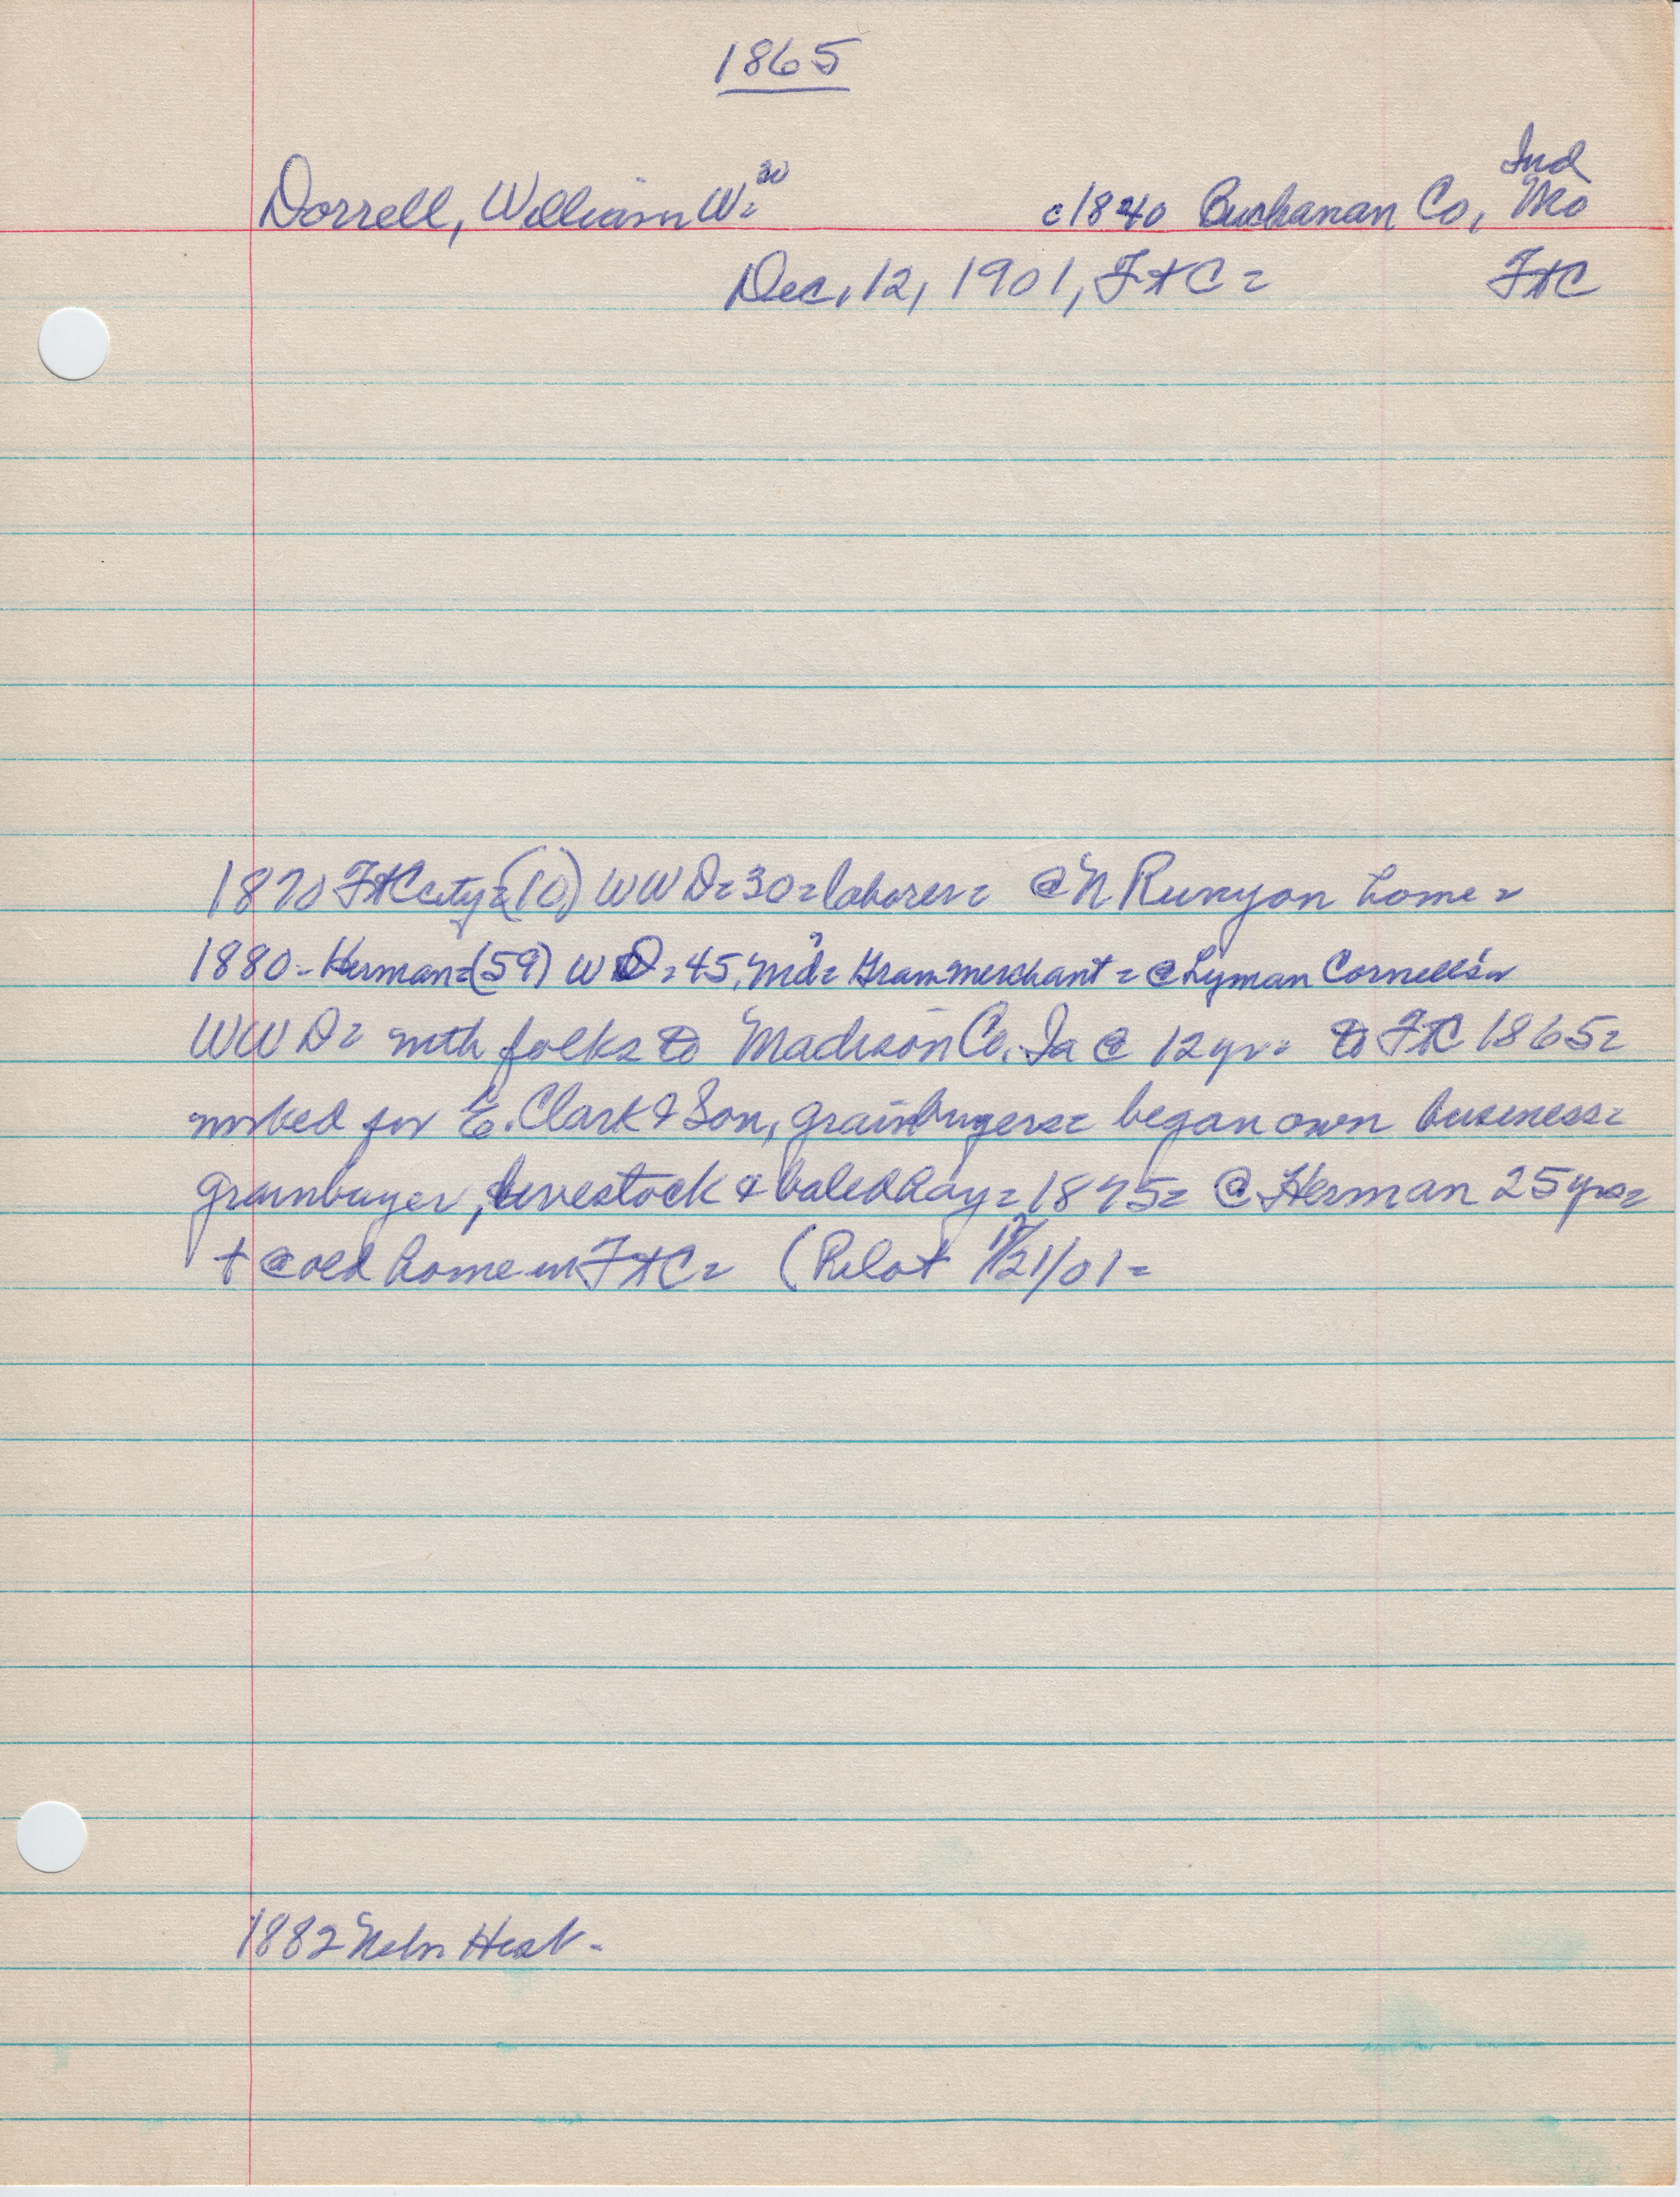 1865
Ind
Dorrell, William W= 30 c1840 Buchanan Co, Mo
Dec, 12, 1901, FtC = FtC
1870 FtC city=(10) WWD=30=laborer= @ N Runyon home=
1880-Herman=(59) WD=45, Md?= Grain merchant = @ Lyman Cornell's=
WWD= with folks to Madison Co. Ia @ 12 yr= to FtC 1865=
worked for E. Clark & Son, grainbuyers= began own business=
grainbuyer, livestock & baled hay= 1875= @ Herman 25 yrs=
+ @ old home in FtC= (Pilot 12/21/01=
1882 Nebr Hist-